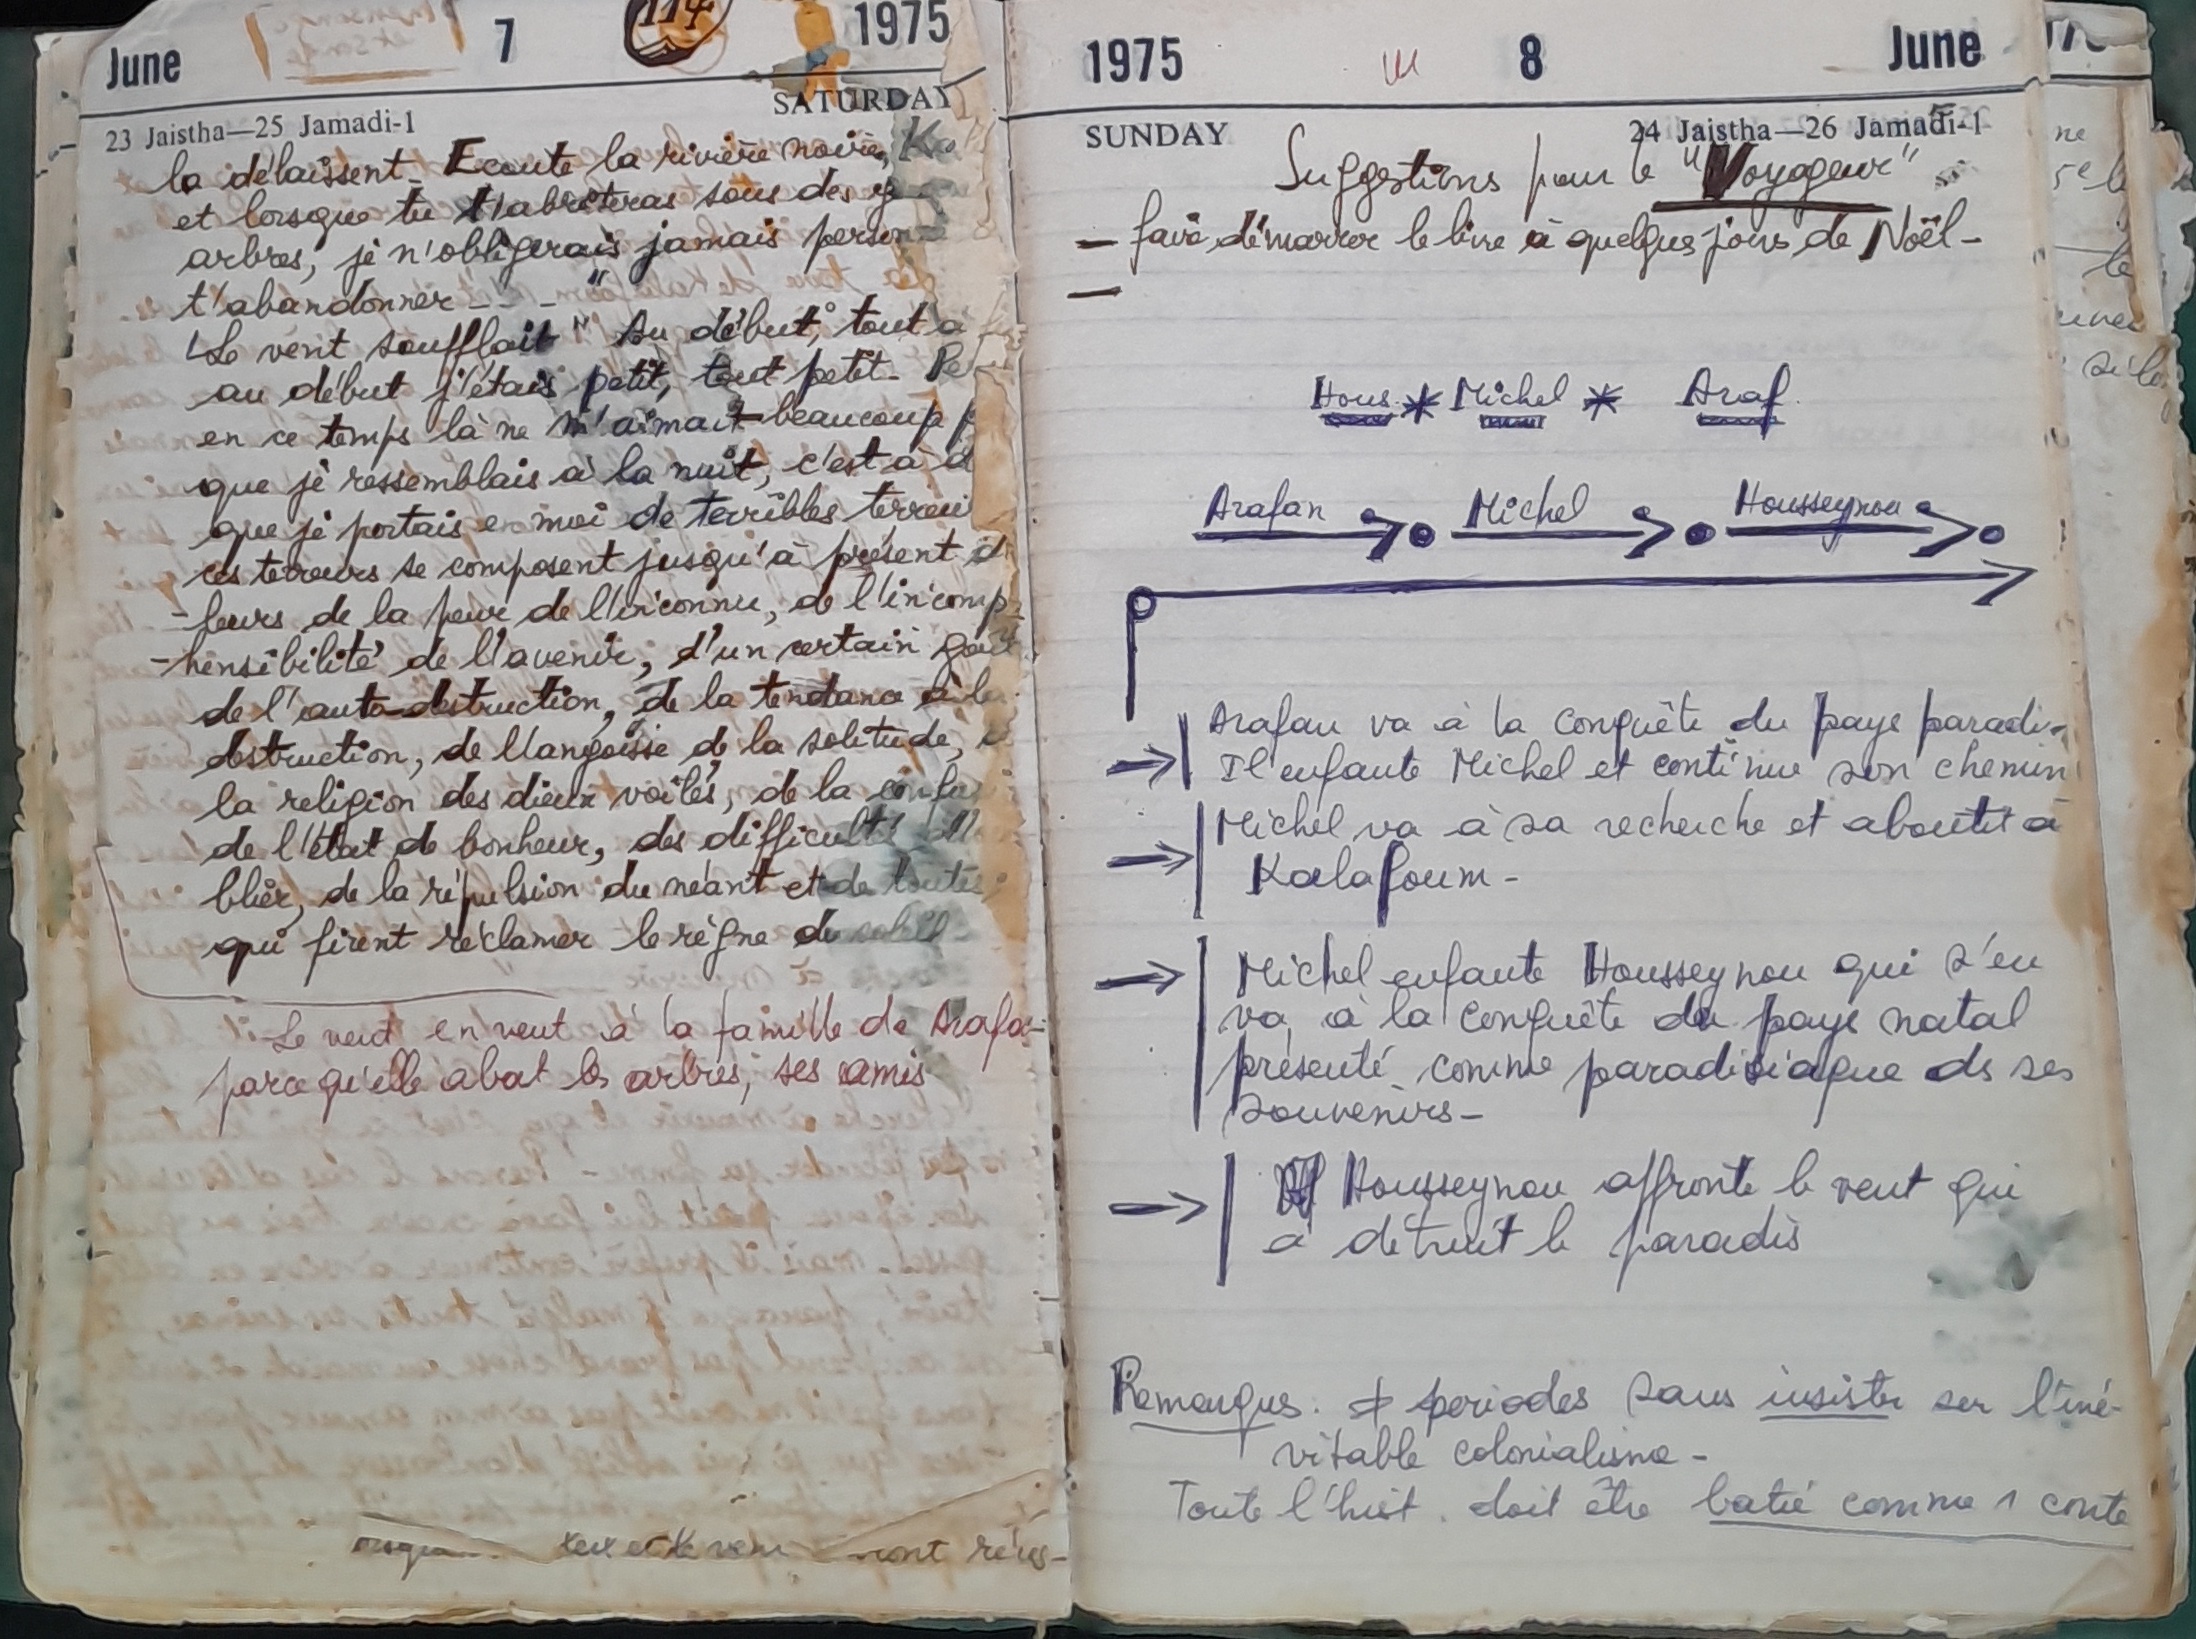 June 7 114 1975
SATURDAY
23 Jaistha—25 Jamadi-1
la délaissent. Ecoute la rivière noire,
et lorsque tu t'abriteras sous des
arbres, je n'obligerais jamais person
t'abandonner - - - "
Le vent soufflait " Au début, tout à
au début j'étais petit, tout petit.
en ce temps là ne m'aimait beaucoup
que je ressemblais à la nuit, c'est à d
que je portais en moi de terribles
ces terreurs se composent jusqu'à présent
-leurs de la peur de l'inconnu, de l'incomp
-hensibilité de l'avenir, d'un certain goût
de l'auto-destruction, de la tendance à la
destruction, de l'angoisse de la solitude,
la religion des dieux voilés, de la
de l'état de bonheur, des difficultés
blier, de la répulsion du néant et de toutes
qui firent réclamer le règne du soleil
Le vent en veut à la famille de
parce qu'elle abat les arbres, ses amis
1975 8 June
SUNDAY
24 Jaistha—26 Jamadi-1
Suggestions pour le "Voyageur"
- faire démarrer le livre à quelques jours de Noël -
-
Hous * Michel * Araf.
Arafan Michel Housseynou
Arafan va à la conquête du pays paradi-
Il enfante Michel et continue son chemin
Michel va à sa recherche et aboutit à
Kalafoum -
Michel enfante Housseynou qui s'en
va à la conquête du pays natal
présenté comme paradisiaque ds ses
souvenirs -
Housseynou affronte le vent qui
a détruit le paradis
Remarques : ≠ periodes sans insister sur l'iné-
vitable colonialisme -
Toute l'hist. doit être batie comme 1 conte